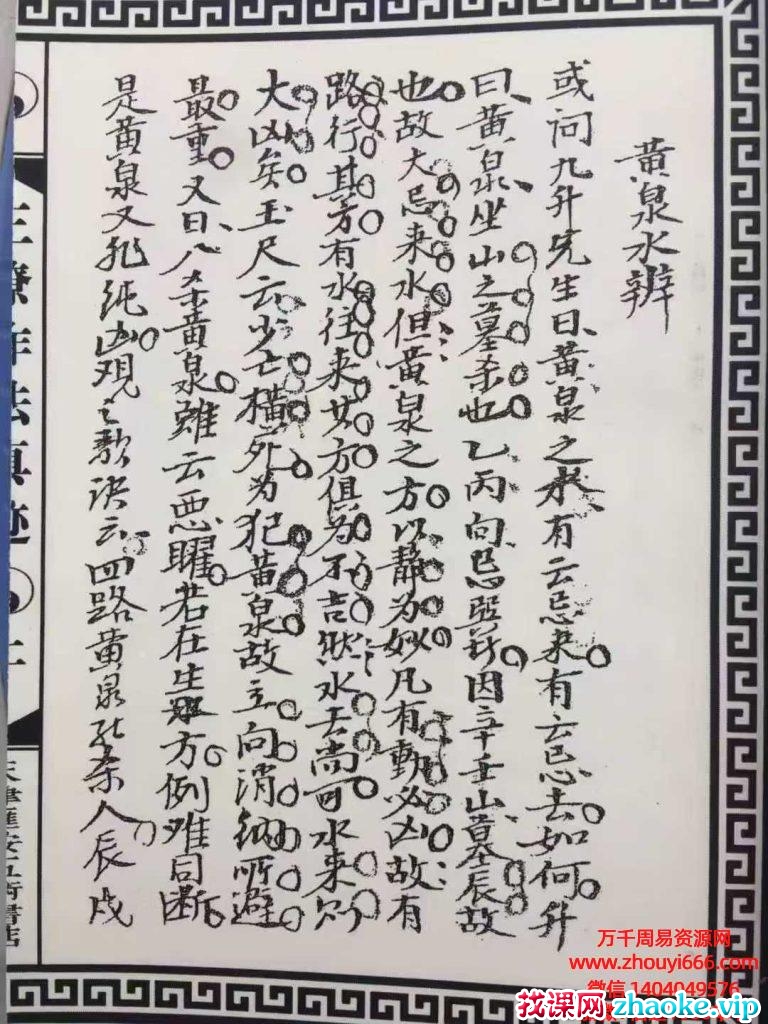 黄泉水辨
或问九升先生曰黄泉之水有云忌来有云忌去如何升
曰黄泉坐山之墓杀也乙丙向忌巽水因辛壬山墓在辰故
也故大忌来水但黄泉之方以静为妙凡有動必凶故有
路行其方有水往来其方俱为不吉然水去尚可水来则
大凶矣玉尺云少亡横死为犯黄泉故立向消纳所避
最重又曰八杀黄泉雖云恶曜若在生方例难同断
是黄泉又非纯凶观之歌诀云四路黄泉能杀人辰戌
法真迹
天津匯安五術書店
万千周易资源网
www.zhouyi666.com
微信 1404049576
找课网zhaoke.vip